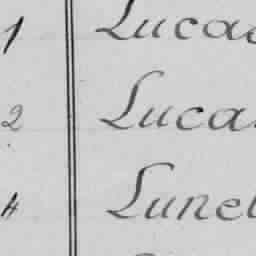 1 Lucas
2 Luca
4 Lunel